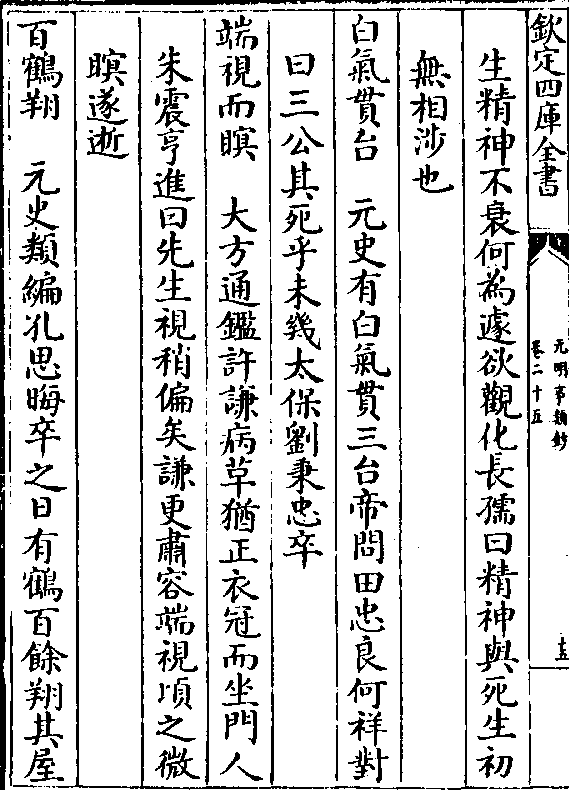 欽定四庫全書
元明事類鈔
卷二十五
十五
生精神不衰何為遽欲觀化長孺曰精神與死生初
無相涉也
白氣貫台　元史有白氣貫三台帝問田忠良何祥對
曰三公其死乎未幾太保劉秉忠卒
端視而瞑　大方通鑑許謙病草猶正衣冠而坐門人
朱震亨進曰先生視稍偏矣謙更肅容端視頃之微
瞑遂逝
百鶴翔　元史類編孔思晦卒之日有鶴百餘翔其屋